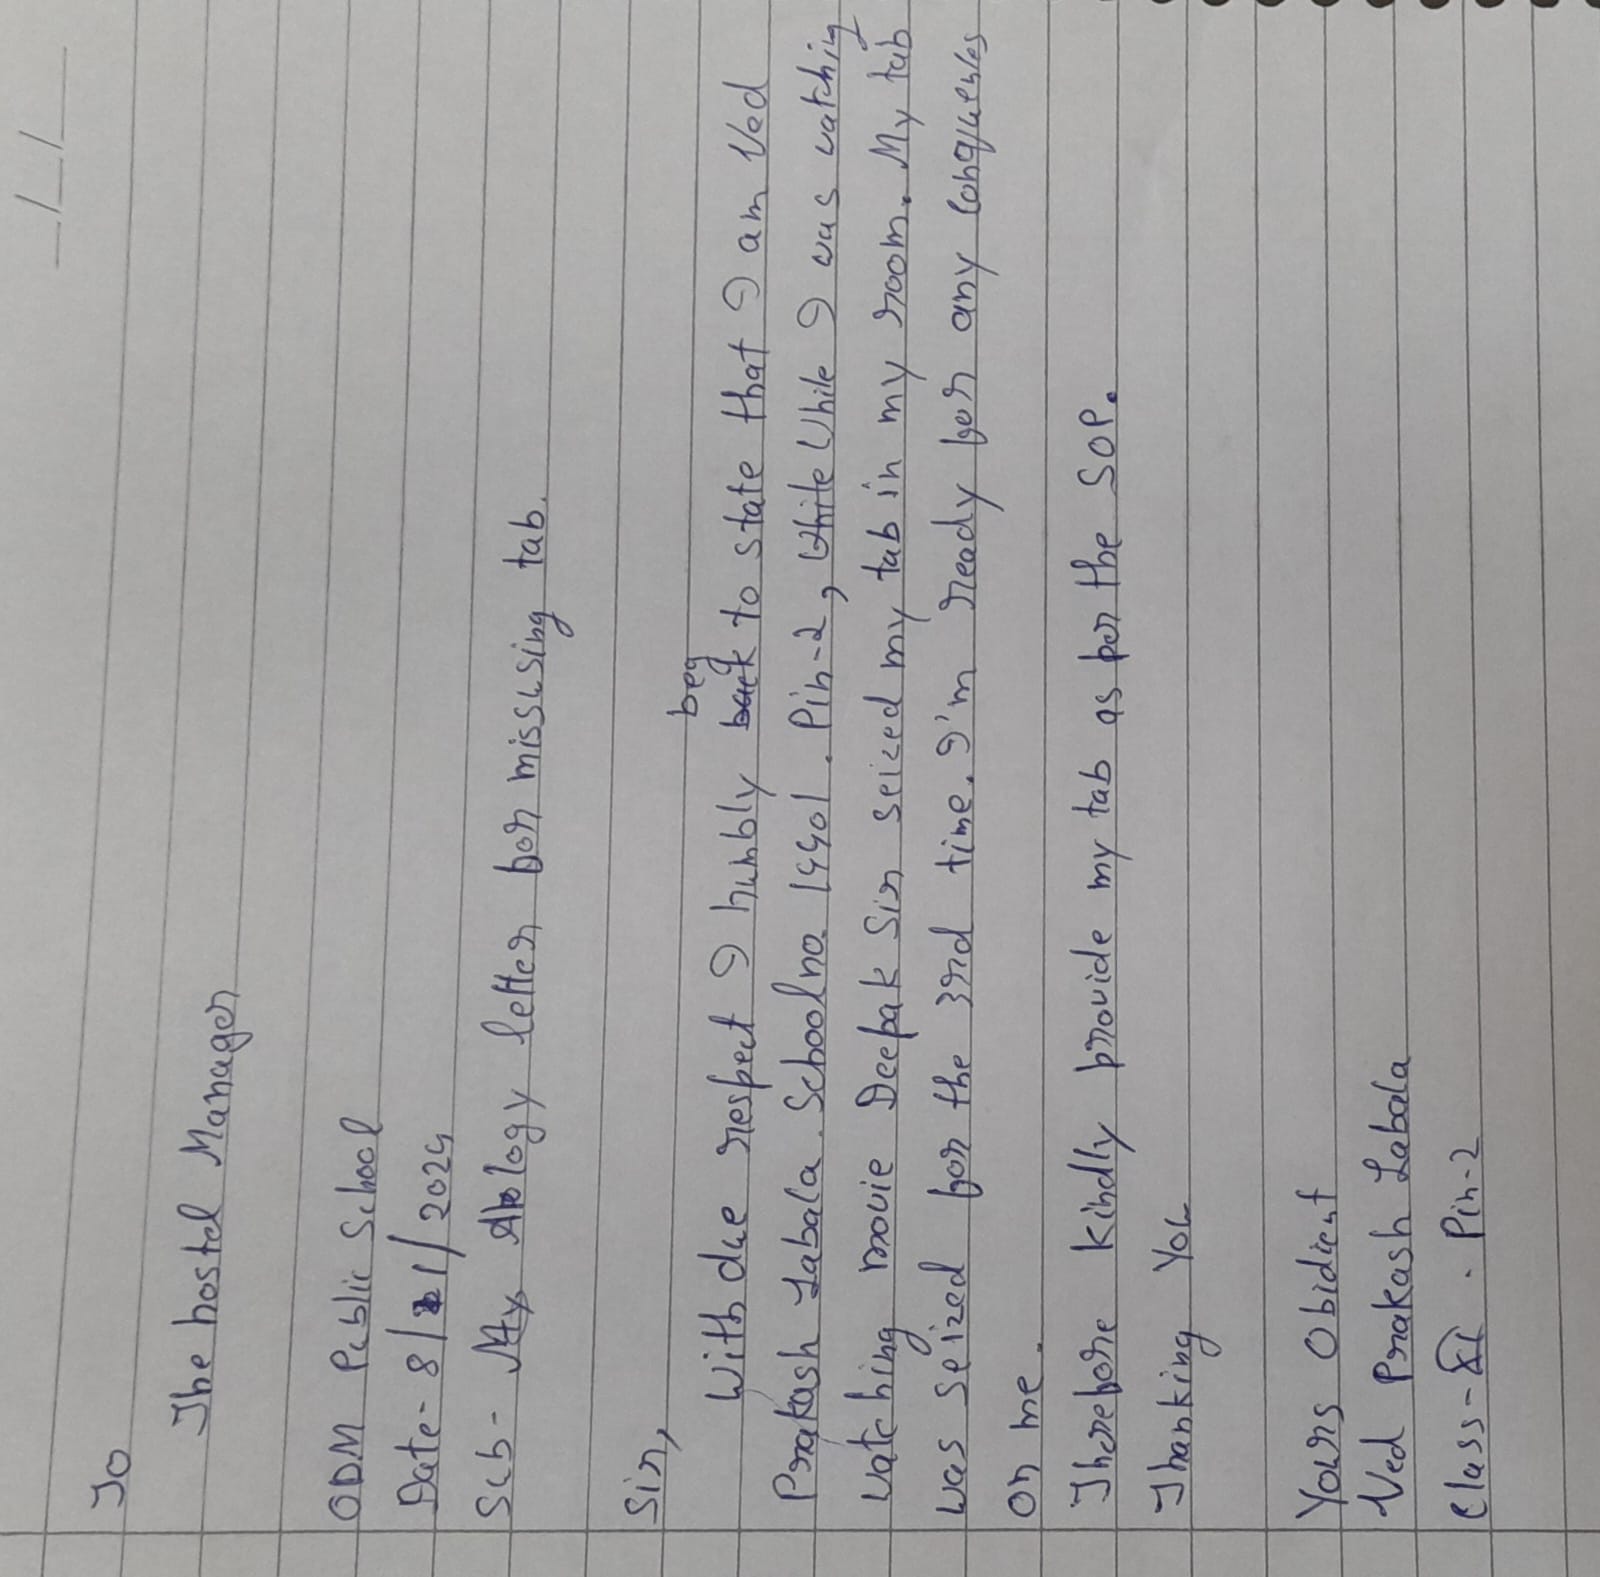 To
The hostel Manager
ODM Public School
Date- 8/1/2024
Sub- Apology letter for missusing tab.
Sir,
With due respect I humbly beg to state that I am Ved
Prakash Labala. School no. 14401. Pin-2, While I was watching
watching movie Deepak Sir seized my tab in my room. My tab
was seized for the 3rd time. I'm ready for any conquences
on me.
Therefore kindly provide my tab as per the SOP.
Thanking You
Yours Obidient
Ved Prakash Labala
Class-XI. Pin-2